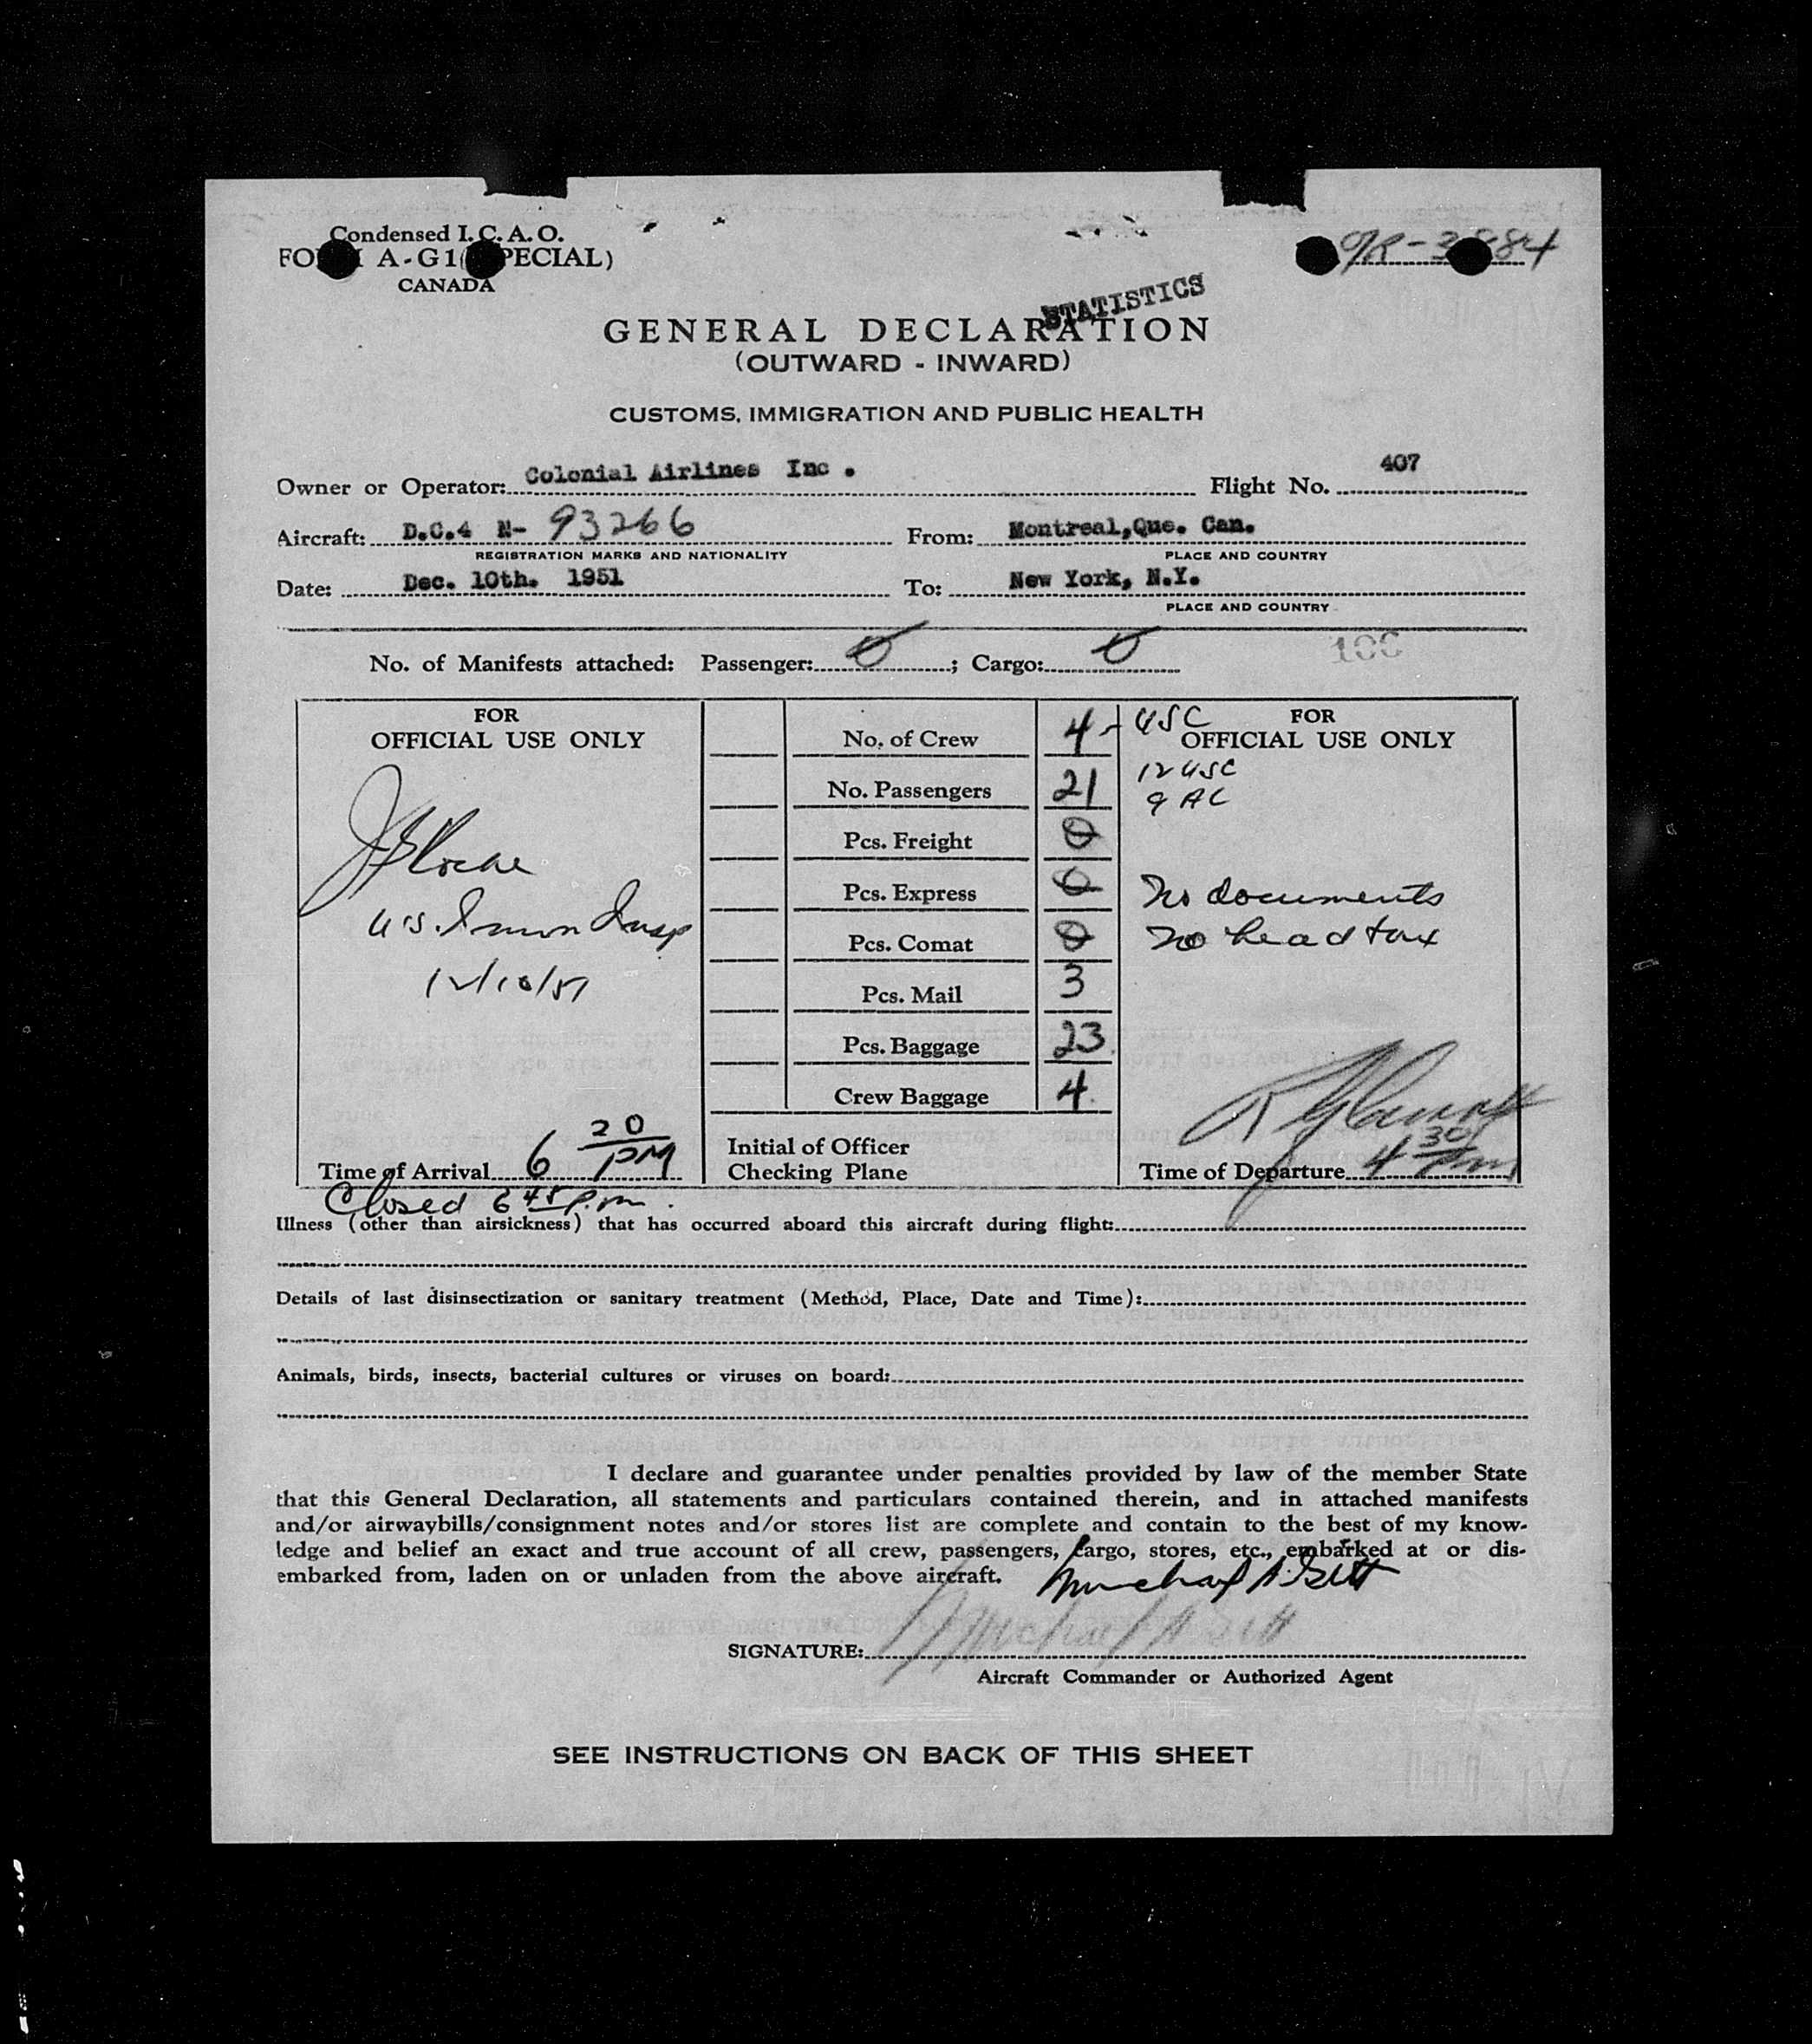 Condensed I. C. A. O.
A-G1
CANADA
STATISTICS
GENERAL DECLARATION
(OUTWARD - INWARD)
CUSTOMS, IMMIGRATION AND PUBLIC HEALTH
Owner or Operator: Colonial Airlines Inc . Flight No. 407
Aircraft: D.C.4 N- 93266 From: Montreal,Que. Can.
REGISTRATION MARKS AND NATIONALITY PLACE AND COUNTRY
Date: Dec. 10th. 1951 To: New York, N.Y.
PLACE AND COUNTRY
No. of Manifests attached: Passenger: 0 ; Cargo: 0
100
FOR
OFFICIAL USE ONLY
U.S. Immn Insp
12/10/51
Time of Arrival 6 20 PM
Closed 6 45 P.m.
No. of Crew 4 - USC
No. Passengers 21
Pcs. Freight 0
Pcs. Express 0
Pcs. Comat 0
Pcs. Mail 3
Pcs. Baggage 23
Crew Baggage 4
Initial of Officer
Checking Plane
FOR
OFFICIAL USE ONLY
12 USC
9 AC
No documents
No head tax
Time of Departure 4 30 Pm
Illness (other than airsickness) that has occurred aboard this aircraft during flight:
Details of last disinsectization or sanitary treatment (Method, Place, Date and Time):
Animals, birds, insects, bacterial cultures or viruses on board:
I declare and guarantee under penalties provided by law of the member State
that this General Declaration, all statements and particulars contained therein, and in attached manifests
and/or airwaybills/consignment notes and/or stores list are complete and contain to the best of my know-
ledge and belief an exact and true account of all crew, passengers, cargo, stores, etc., embarked at or dis-
embarked from, laden on or unladen from the above aircraft.
Michael A.
SIGNATURE: Michael A
Aircraft Commander or Authorized Agent
SEE INSTRUCTIONS ON BACK OF THIS SHEET